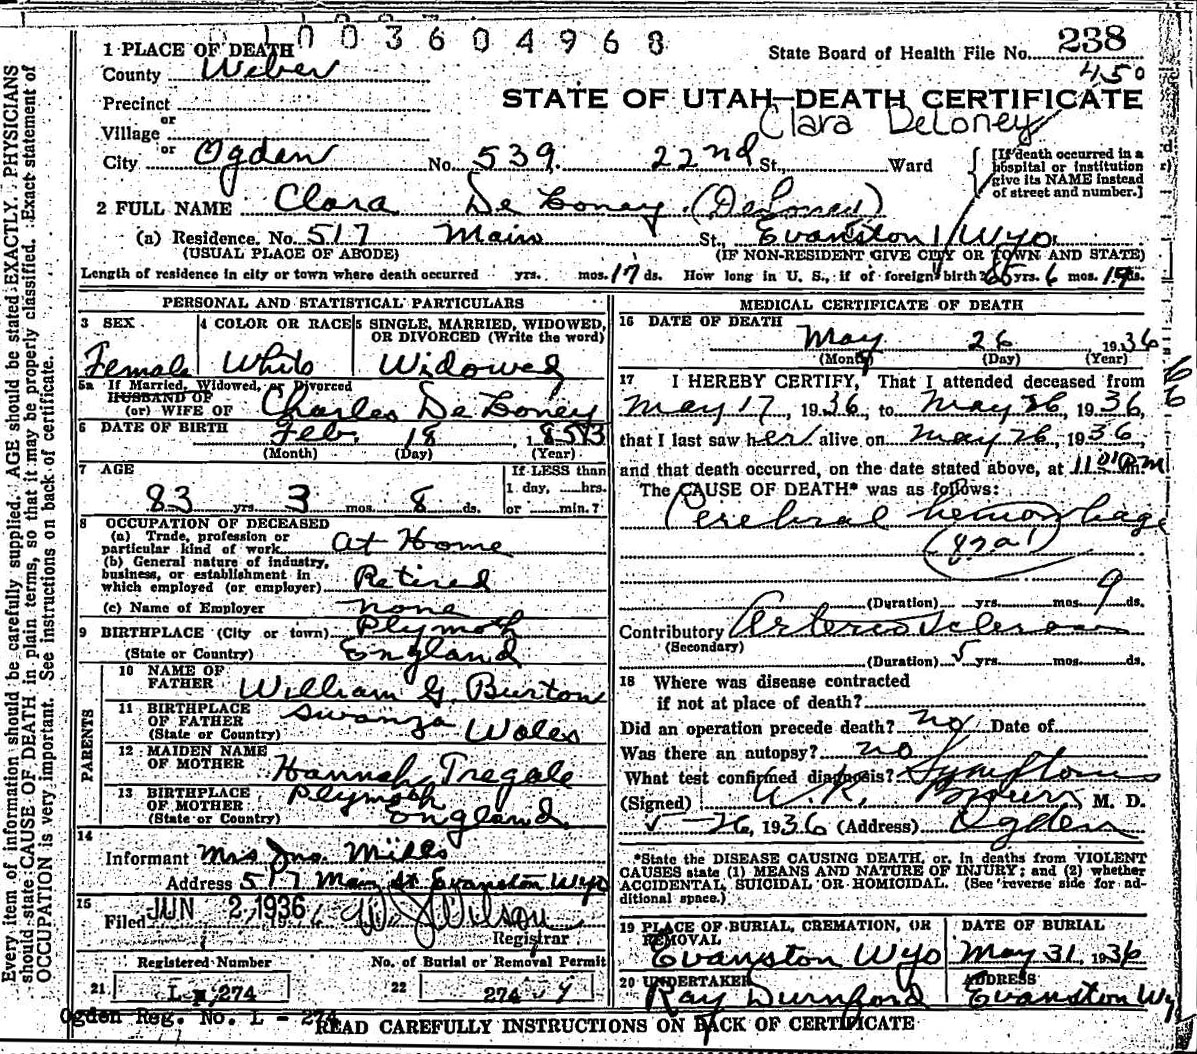 1003604968
1 PLACE OF DEATH
State Board of Health File No. 238
County Weber
450
Precinct
STATE OF UTAH—DEATH CERTIFICATE
or
Village
Clara DeLoney
or
City Ogden No. 539. 22nd St., Ward
[If death occurred in a
hospital or institution
give its NAME instead
of street and number.]
2 FULL NAME Clara De Loney (DeLoney)
(a) Residence. No. 517 Main St., Evanston, Wyo.
(USUAL PLACE OF ABODE) (IF NON-RESIDENT GIVE CITY OR TOWN AND STATE)
Length of residence in city or town where death occurred yrs. mos. 17 ds. How long in U. S., if of foreign birth? 65 yrs. 6 mos. ds.
PERSONAL AND STATISTICAL PARTICULARS
3 SEX
Female
4 COLOR OR RACE
White
5 SINGLE, MARRIED, WIDOWED,
OR DIVORCED (Write the word)
Widowed
5a If Married, Widowed, or Divorced
HUSBAND OF
(or) WIFE OF Charles De Loney
6 DATE OF BIRTH Feb. 18, 1853
(Month) (Day) (Year)
7 AGE
83 yrs. 3 mos. 8 ds.
If LESS than
1 day, hrs.
or min.?
8 OCCUPATION OF DECEASED
(a) Trade, profession or
particular kind of work At Home
(b) General nature of industry,
business, or establishment in
which employed (or employer) Retired
(c) Name of Employer none
9 BIRTHPLACE (City or town) Plymoth
(State or Country) England
PARENTS
10 NAME OF
FATHER William G. Burton
11 BIRTHPLACE
OF FATHER Swanza
(State or Country) Wales
12 MAIDEN NAME
OF MOTHER Hannah Tregale
13 BIRTHPLACE
OF MOTHER Plymoth
(State or Country) England
14
Informant Mrs Jno. Mills
Address 517 Main St Evanston Wyo
15
Filed JUN 2, 1936 W J Wilson
Registrar
Registered Number
No. of Burial or Removal Permit
21 L - 274
22 274
Ogden Reg. No. L - 274
MEDICAL CERTIFICATE OF DEATH
16 DATE OF DEATH
May 26, 1936
(Month) (Day) (Year)
17 I HEREBY CERTIFY, That I attended deceased from
May 17, 1936, to May 26, 1936,
that I last saw her alive on May 26, 1936,
and that death occurred, on the date stated above, at 11 m
The CAUSE OF DEATH* was as follows:
Cerebral hemorrhage
(82a1)
(Duration) yrs. mos. 9 ds.
Contributory Arterio Sclerosis
(Secondary)
(Duration) 5 yrs. mos. ds.
18 Where was disease contracted
if not at place of death?
Did an operation precede death? no Date of
Was there an autopsy? no
What test confirmed diagnosis? Symptoms
(Signed) W. R. Brown, M. D.
5-26, 1936 (Address) Ogden
*State the DISEASE CAUSING DEATH, or, in deaths from VIOLENT
CAUSES state (1) MEANS AND NATURE OF INJURY; and (2) whether
ACCIDENTAL, SUICIDAL OR HOMICIDAL. (See reverse side for ad-
ditional space.)
19 PLACE OF BURIAL, CREMATION, OR
REMOVAL
Evanston Wyo
DATE OF BURIAL
May 31, 1936
20 UNDERTAKER
Ray Durnford
ADDRESS
Evanston Wy
READ CAREFULLY INSTRUCTIONS ON BACK OF CERTIFICATE
66
Every item of information should be carefully supplied. AGE should be stated EXACTLY. PHYSICIANS
should state CAUSE OF DEATH in plain terms, so that it may be properly classified. Exact statement of
OCCUPATION is very important. See instructions on back of certificate.